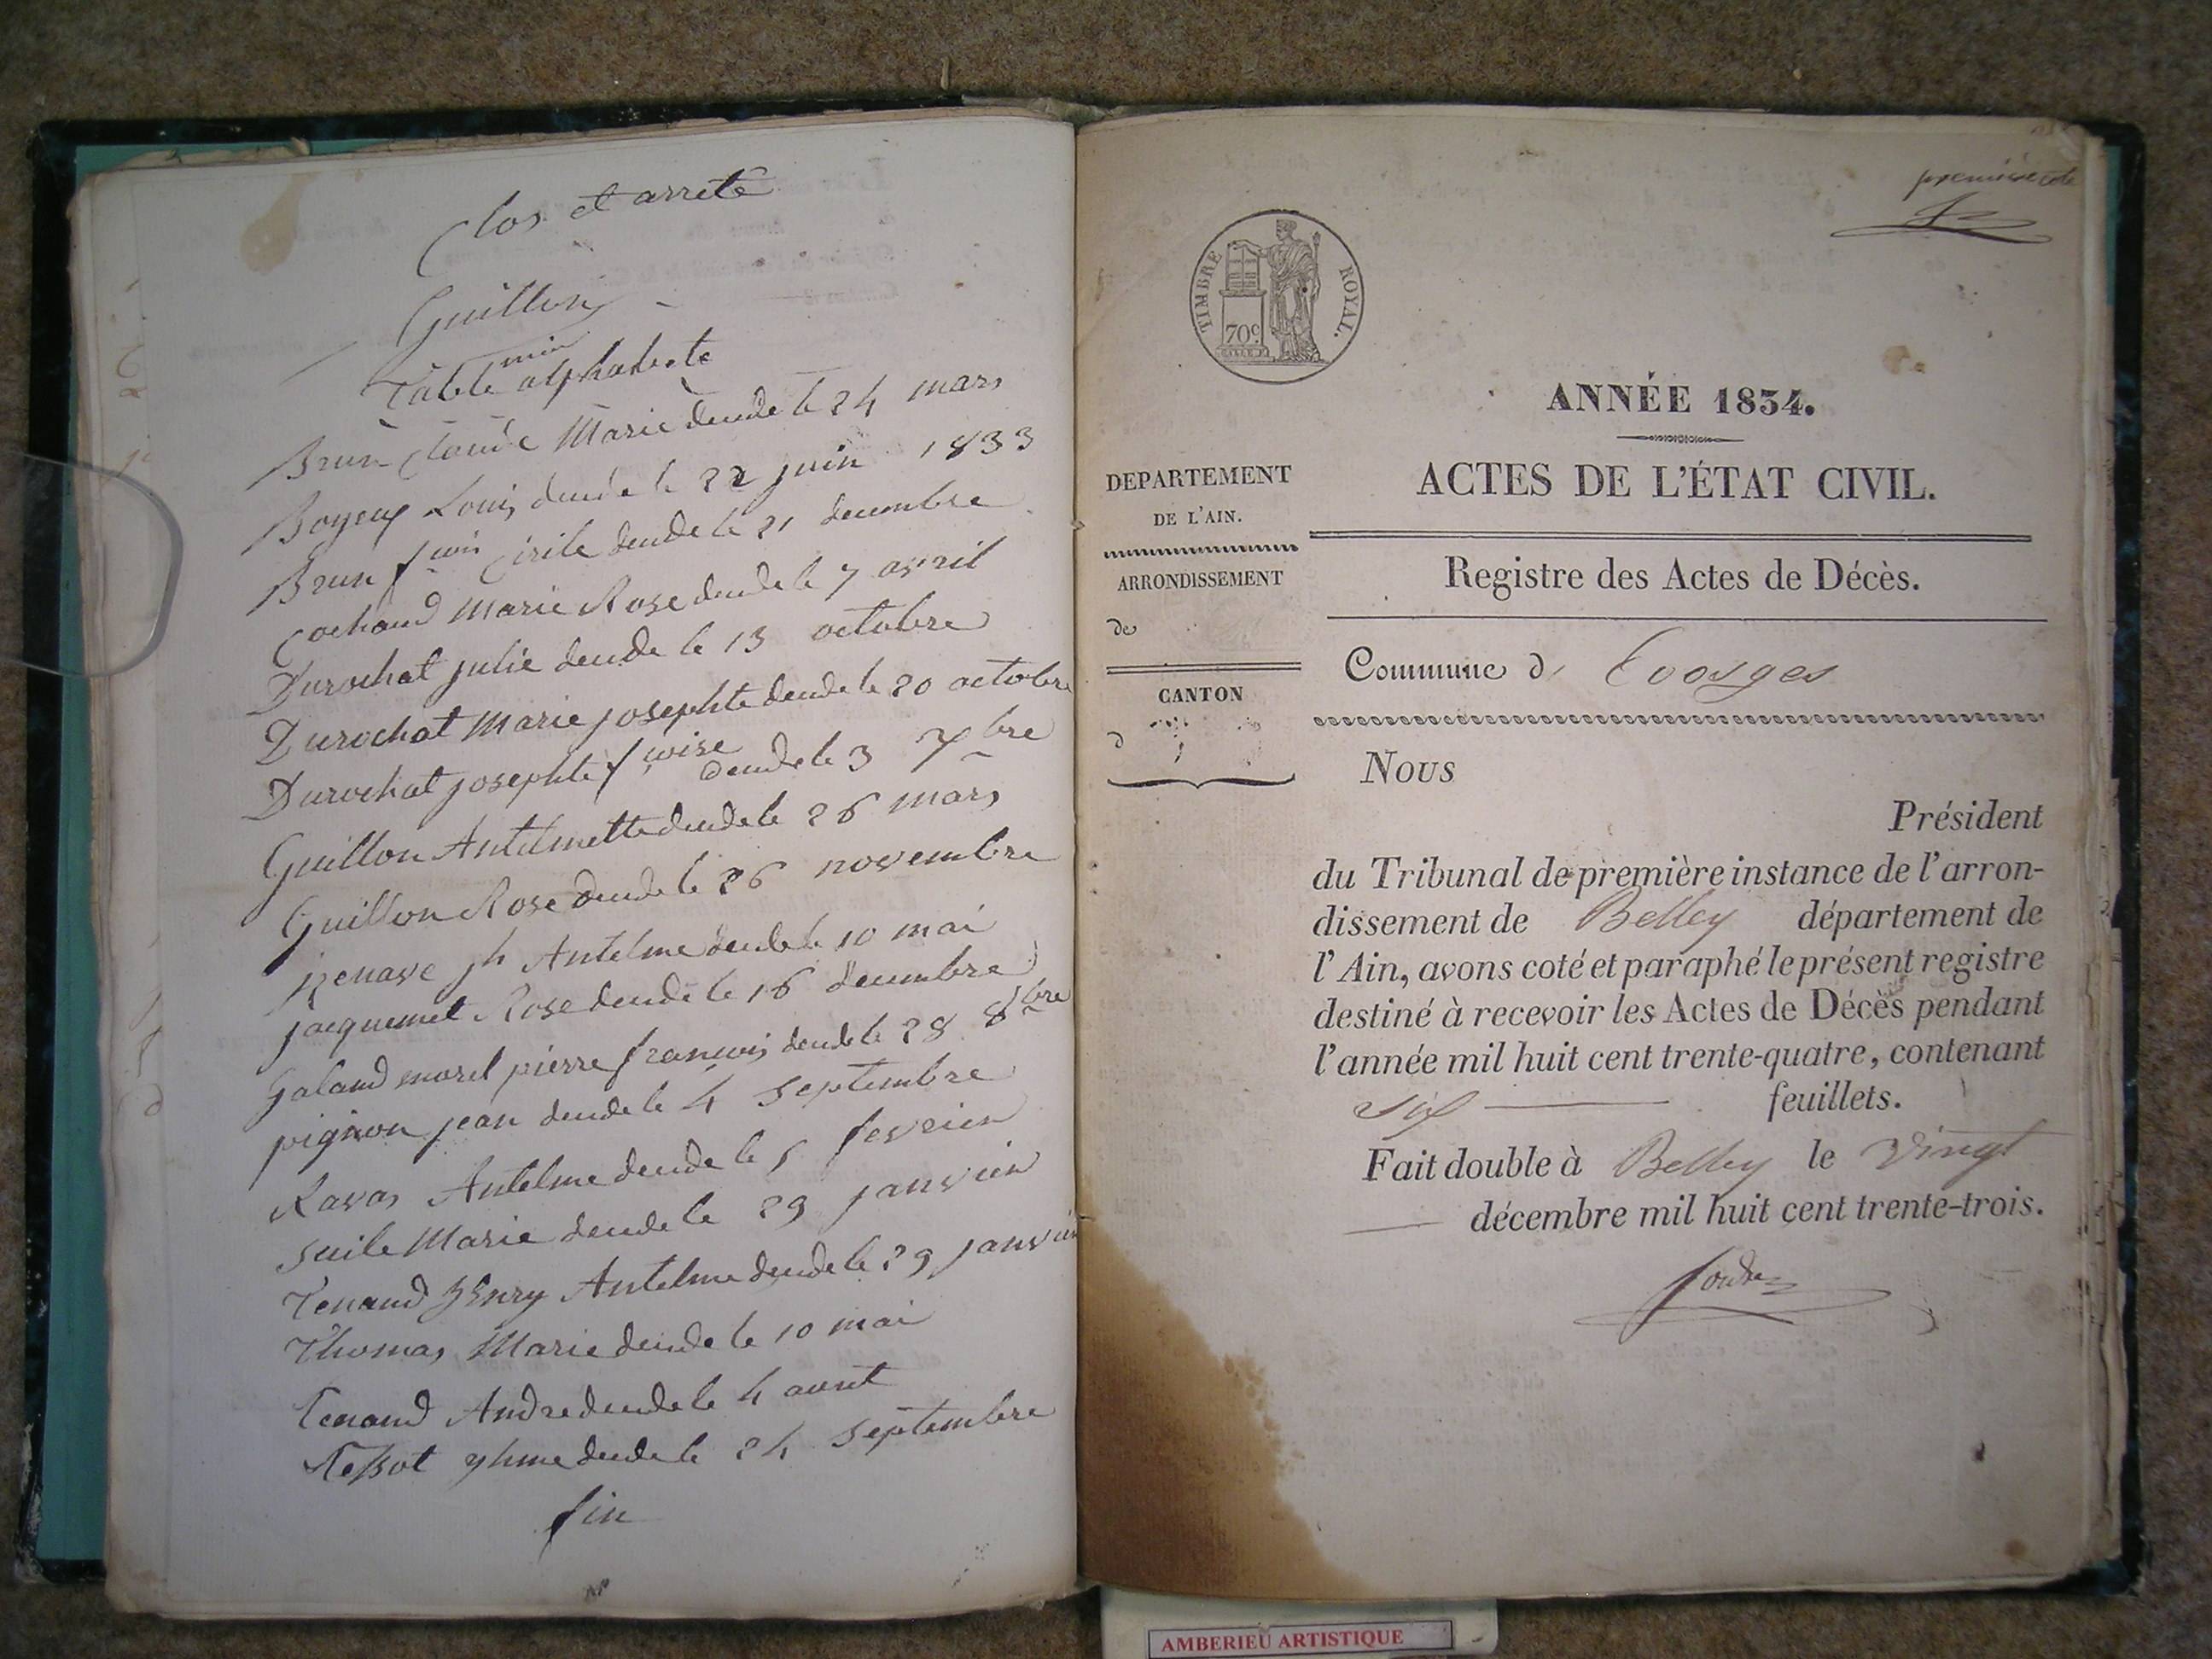 Clos et arrete
Guillon
min
Table alphabete
Brun Claude Marie decede le 24 mars
Boyeux Louis decede le 22 juin 1833
Brun fcois Cirile decede le 21 decembre
Cochand Marie Rose decede le 7 avril
Durochat julie decede le 13 octobre
Durochat Marie josephte decede le 20 octobre
Durochat josephte fcoise decede le 3 7bre
Guillon Antelmette decede le 26 mars
Guillon Rose decede le 26 novembre
jh Antelme decede le 10 mai
jacquemet Rose decede le 16 decembre
Galand morel pierre francois decede le 28 8bre
pignon jean decede le 4 Septembre
Ravas Antelme decede le fevrier
Marie decede le 29 janvier
Tenand Henry Antelme decede le 29 janvier
Thomas Marie decede le 10 mai
Tenand Andre decede le 4 aout
decede le 24 Septembre
fin
première
TIMBRE ROYAL.
70c.
ANNÉE 1834.
ACTES DE L'ÉTAT CIVIL.
Registre des Actes de Décès.
Commune d' Evosges
DEPARTEMENT
DE L'AIN.
ARRONDISSEMENT
de
CANTON
d
Nous
Président
du Tribunal de première instance de l'arron-
dissement de Belley département de
l'Ain, avons coté et paraphé le présent registre
destiné à recevoir les Actes de Décès pendant
l'année mil huit cent trente-quatre, contenant
six feuillets.
Fait double à Belley le vingt
décembre mil huit cent trente-trois.
AMBERIEU ARTISTIQUE